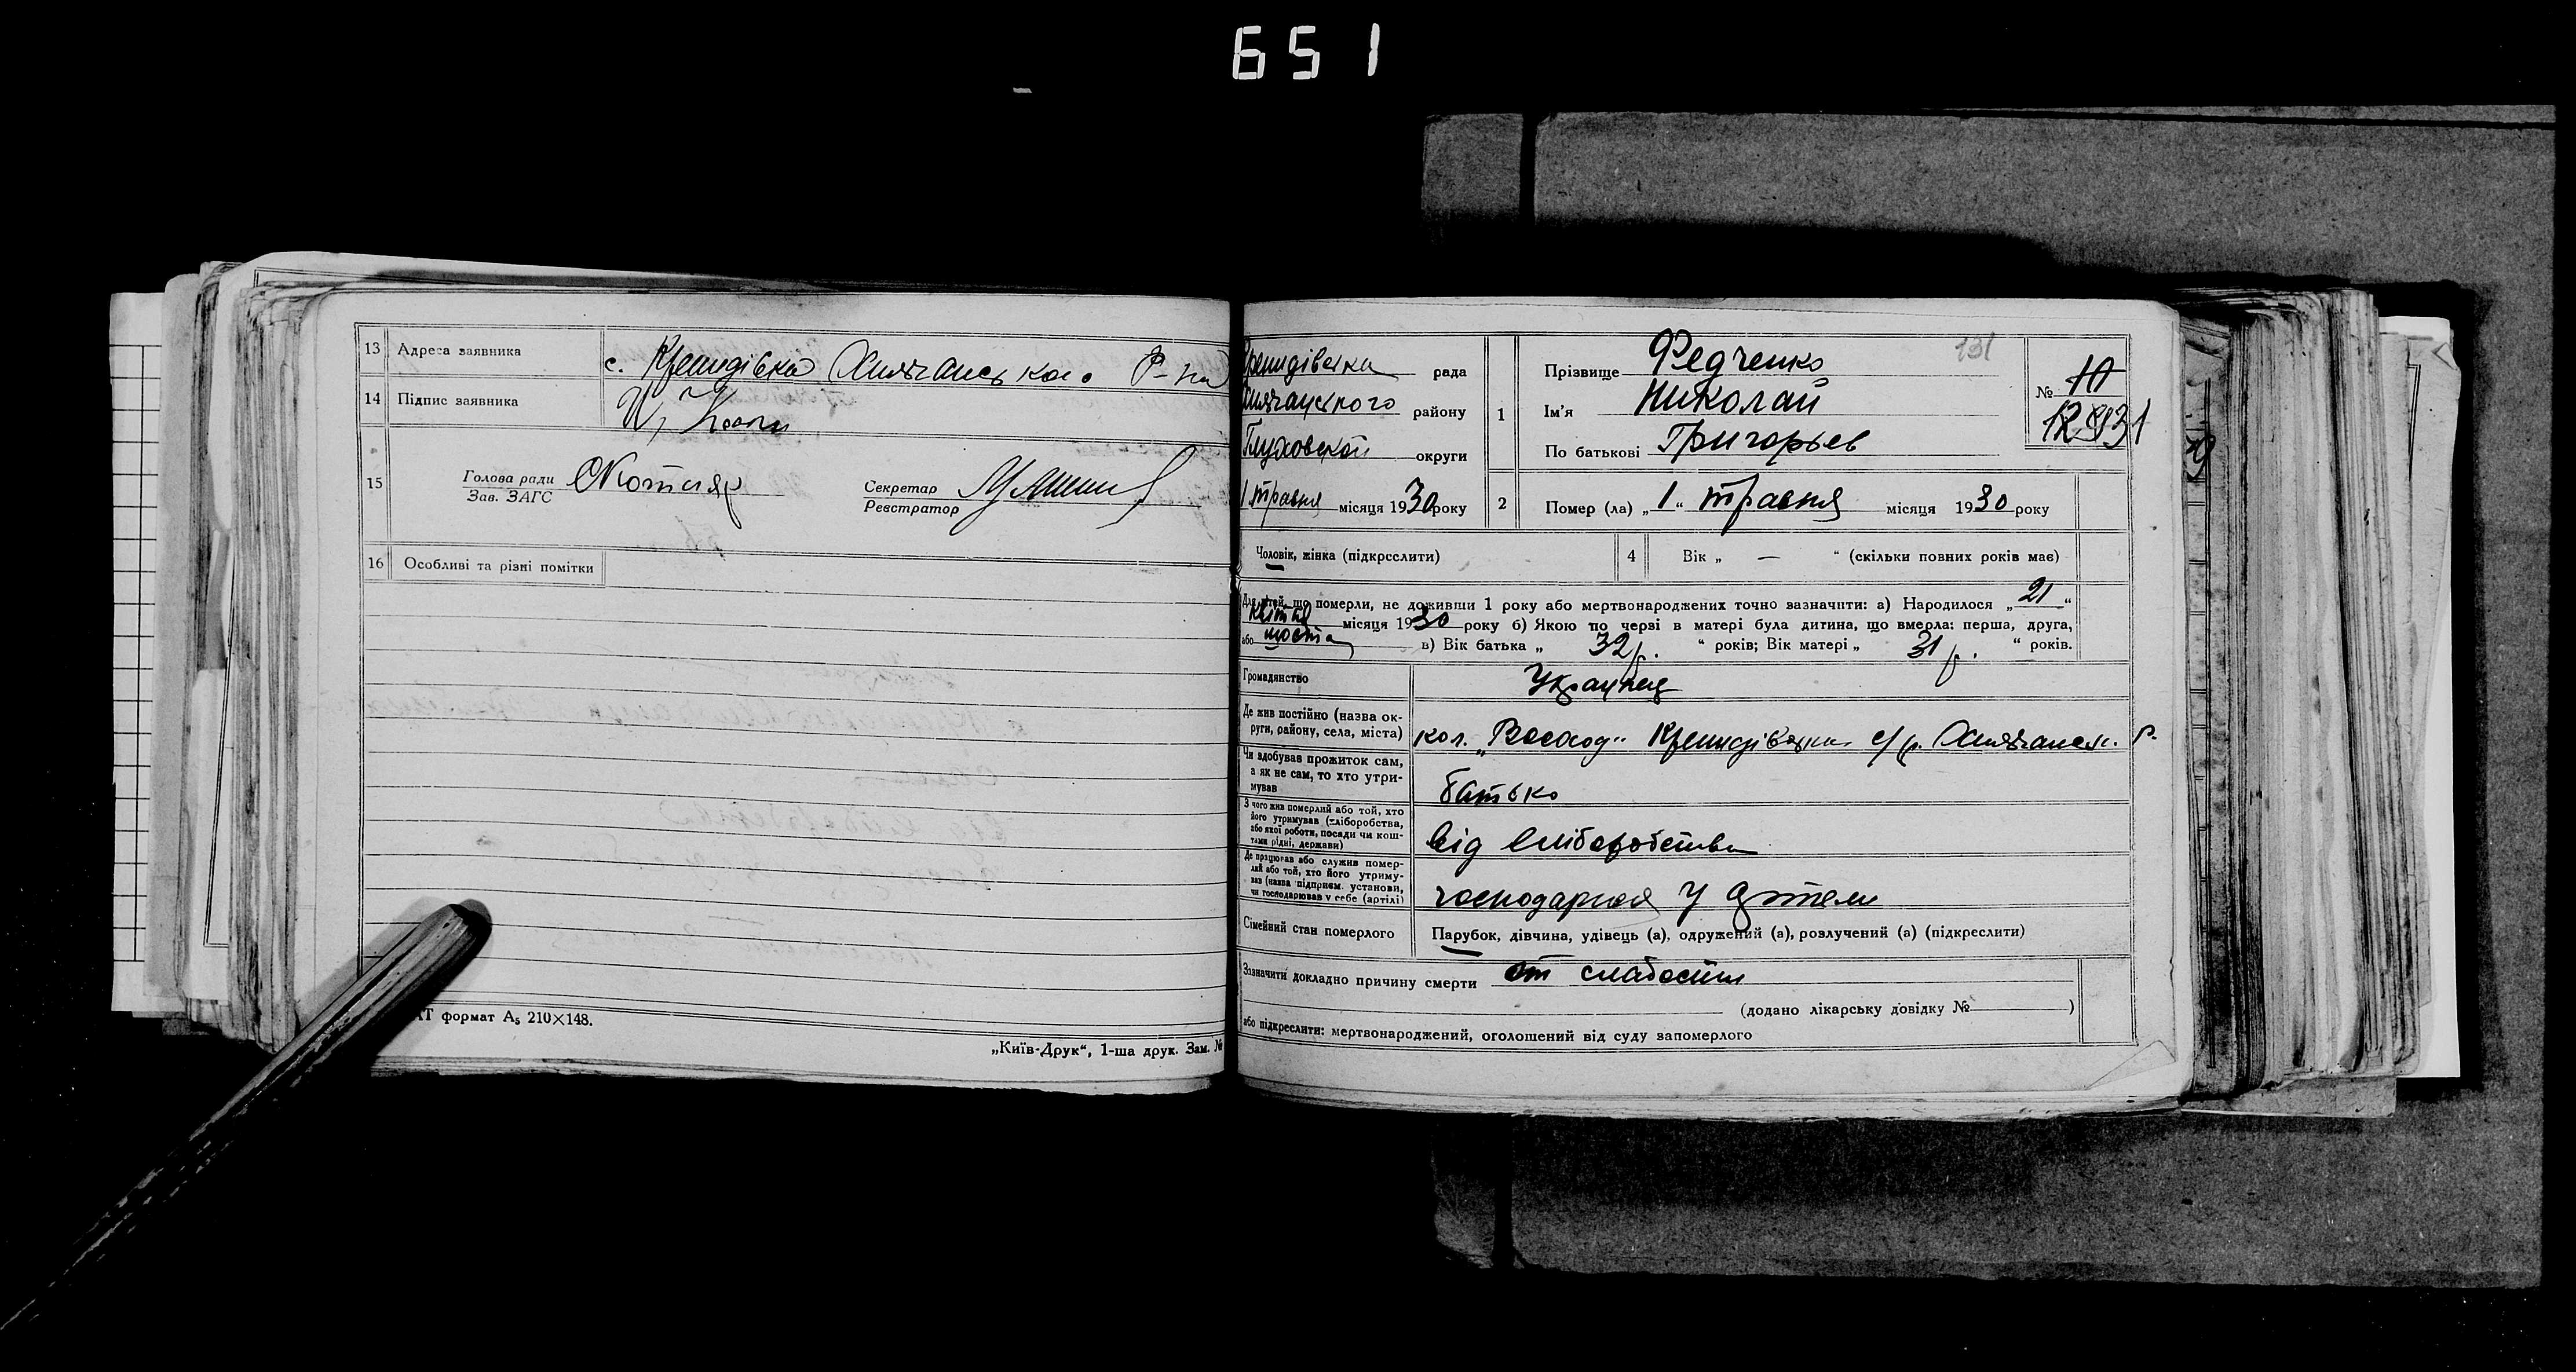 651
13 Адреса заявника с. Кренидівка Хильчанського Р-на
14 Підпис заявника
15 Голова ради Котляр Секретар
Зав. ЗАГС Реєстратор
16 Особливі та різні помітки
АТ формат А5 210×148.
„Київ-Друк“, 1-ша друк. Зам. №
Кренидівська рада
Хильчанського району
Глуховской округи
1 травня місяця 1930 року
131
1 Прізвище Федченко
Ім’я Николай
По батькові Григорьев
№ 10
12
2 Помер (ла) „1“ травня місяця 1930 року
Чоловік, жінка (підкреслити)
4 Вік „ — “ (скільки повних років має)
Для дітей, що померли, не доживши 1 року або мертвонароджених точно зазначити: а) Народилося „21“
квітня місяця 1930 року б) Якою по черзі в матері була дитина, що вмерла: перша, друга,
або шоста в) Вік батька „ 32 р. “ років; Вік матері „ 31 р. “ років.
Громадянство Українец
Де жив постійно (назва ок-
руги, району, села, міста) кол. „Восход“ Кренидівська с/р. Хильчанськ. р.
Чи здобував прожиток сам,
а як не сам, то хто утри-
мував батько
З чого жив померлий або той, хто
його утримував (хліборобства,
або якої роботи, посади чи кош-
тами рідні, держави) від хліборобства
Де працював або служив помер-
лий або той, хто його утриму-
вав (назва підприєм. установи,
чи господарював у себе (артілі) господарства у артели
Сімейний стан померлого Парубок, дівчина, удівець (а), одружений (а), розлучений (а) (підкреслити)
Зазначити докладно причину смерти от слабости
(додано лікарську довідку № )
або підкреслити: мертвонароджений, оголошений від суду запомерлого